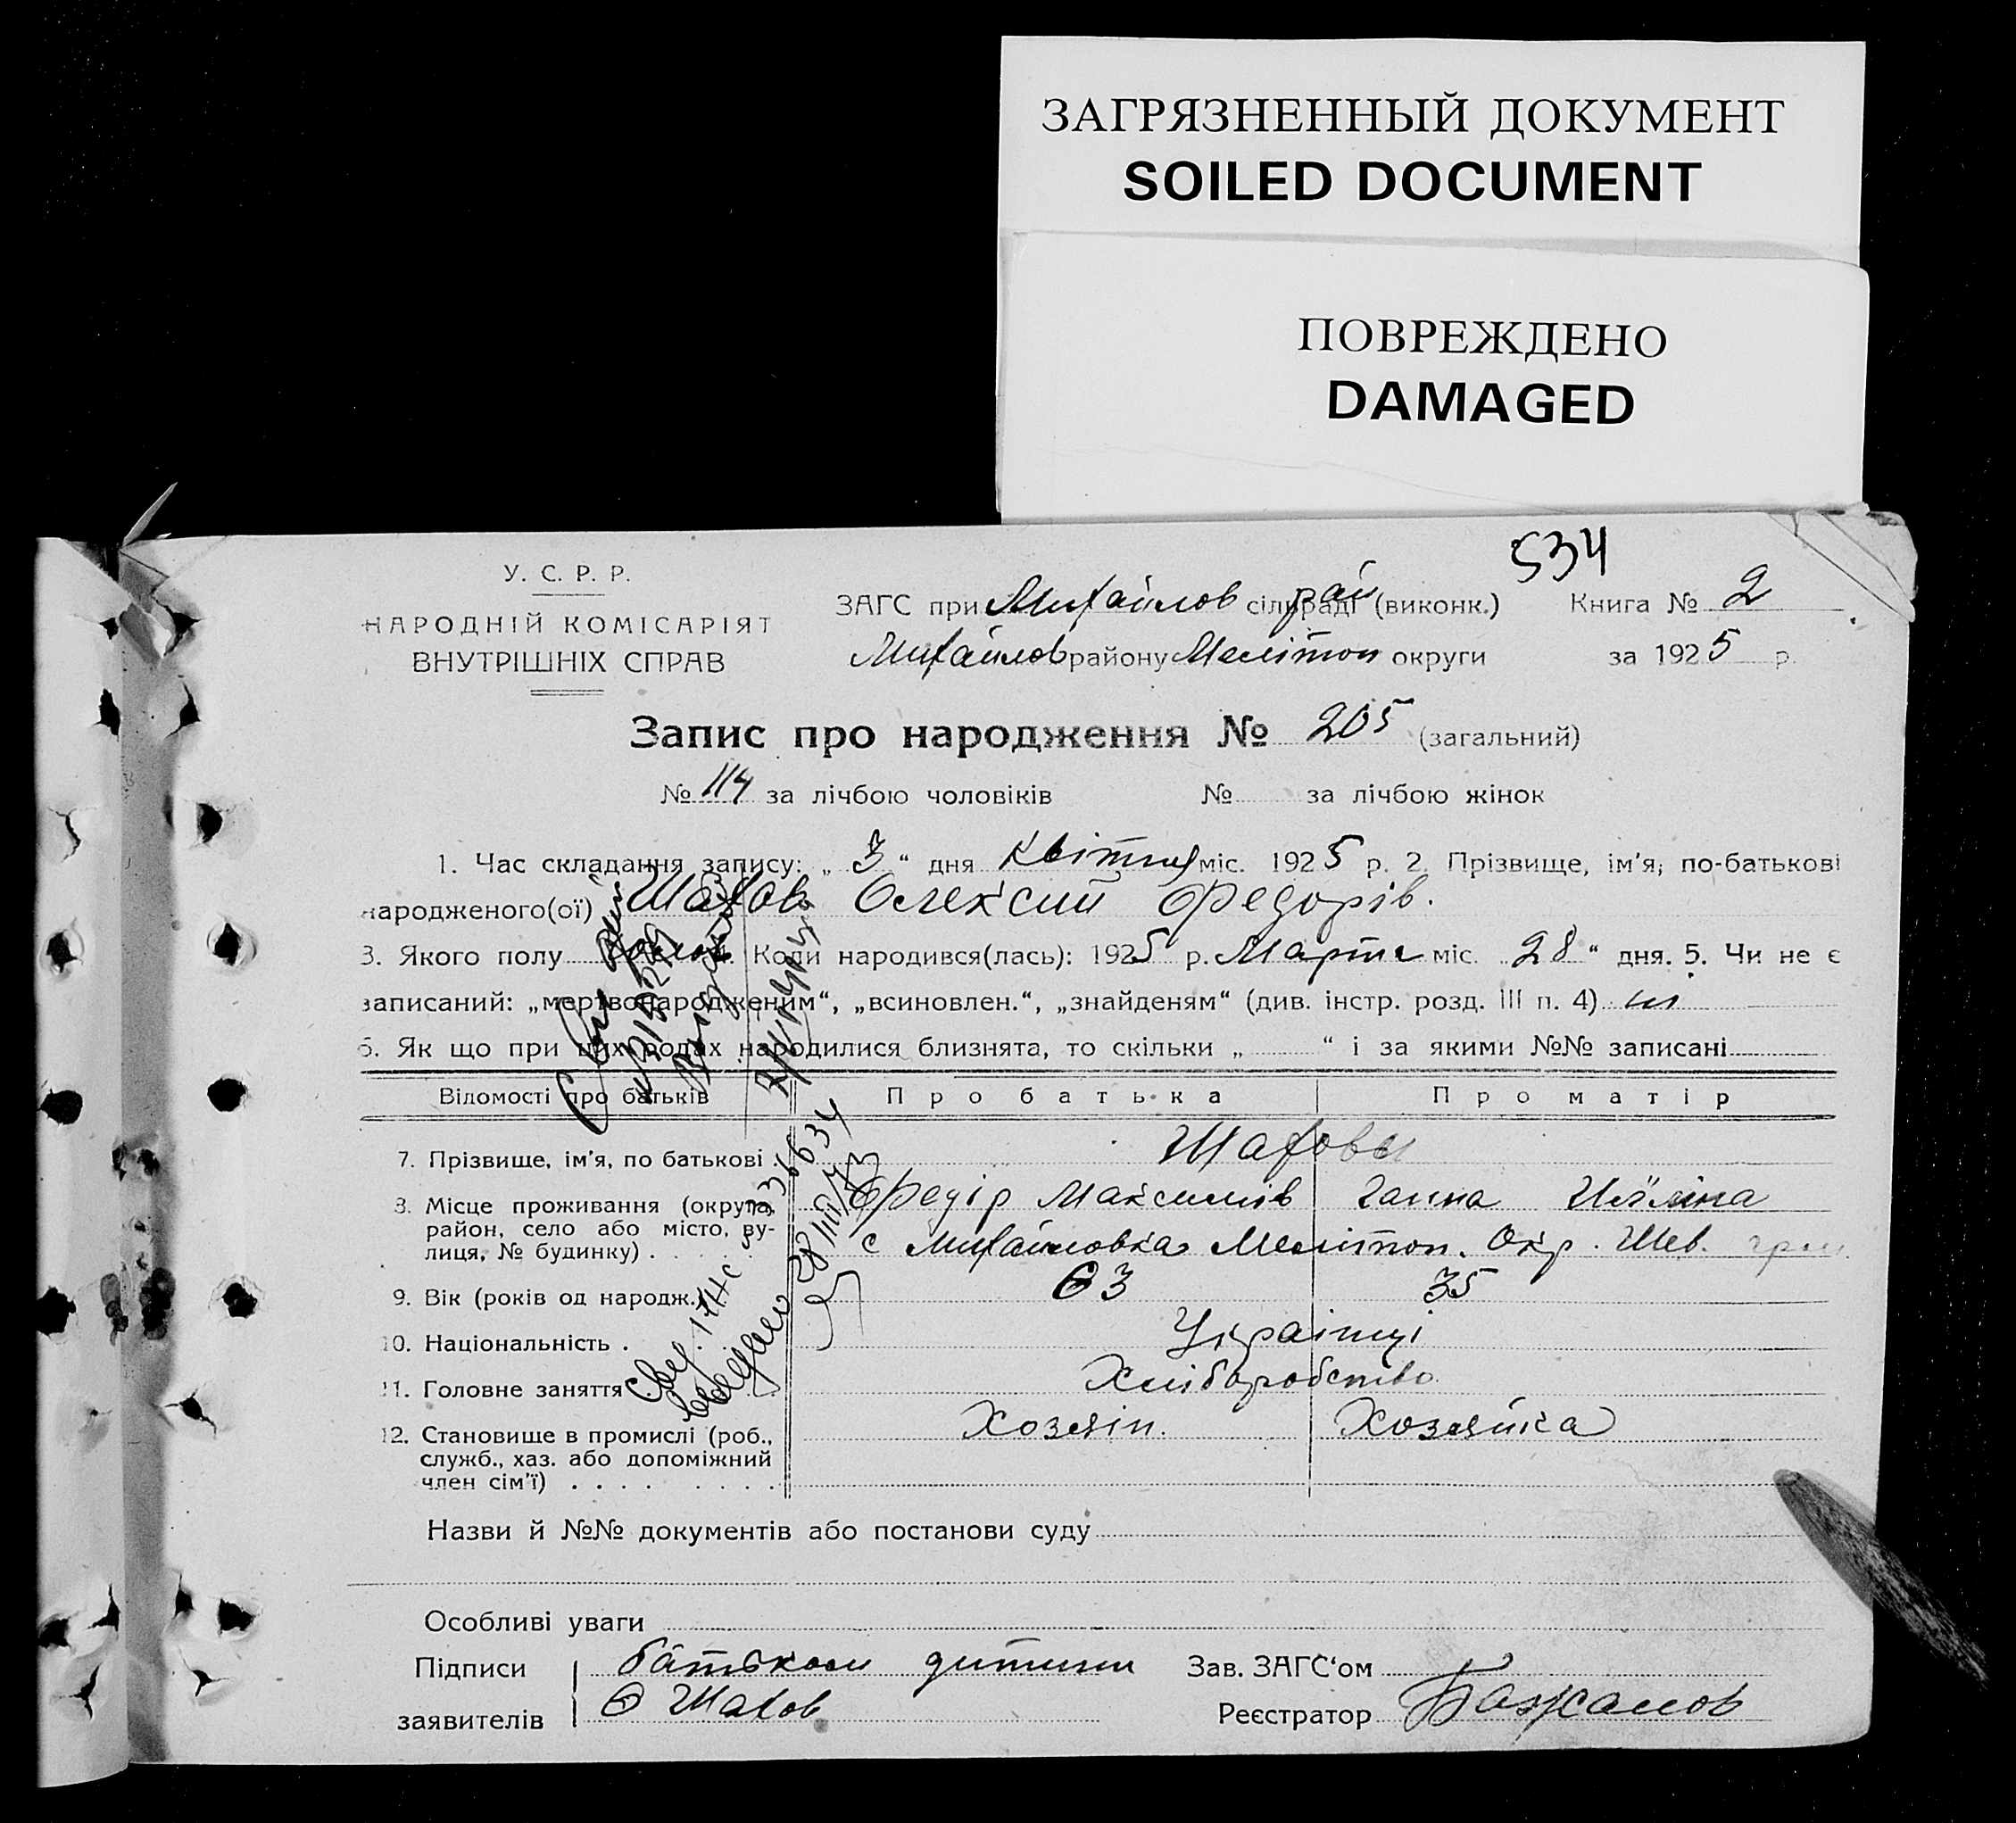 ЗАГРЯЗНЕННЫЙ ДОКУМЕНТ
SOILED DOCUMENT
ПОВРЕЖДЕНО
DAMAGED
534
У. С. Р. Р.
НАРОДНІЙ КОМІСАРІЯТ
ВНУТРІШНІХ СПРАВ
ЗАГС при Михайлов рай сільраді (виконк.) Книга № 2
Михайлов району Мелітоп округи за 1925 р.
Запис про народження № 205 (загальний)
№ 114 за лічбою чоловіків № за лічбою жінок
1. Час складання запису: „ 3 “ дня Квітня міс. 1925 р. 2. Прізвище, ім'я, по-батькові
народженого(ої) Шахов Олексий Федорів.
3. Якого полу 4. Коли народився(лась): 1925 р. Марта міс. „ 28 “ дня. 5. Чи не є
записаний: „мертвонародженим“, „всиновлен.“, „знайденям“ (див. інстр. розд. III п. 4) ні
6. Як що при цих родах народилися близнята, то скільки „ “ і за якими №№ записані
Відомості про батьків Про батька Про матір
7. Прізвище, ім'я, по батькові Шаховы
Федір Максимів Ганна
8. Місце проживання (округа,
район, село або місто, ву-
лиця, № будинку) с Михайловка Меліпоп. Окр. Шев.
9. Вік (років од народж.) 63 35
10. Національність Українці
11. Головне заняття Хліборобство
12. Становище в промислі (роб.,
служб., хаз. або допоміжний
член сім'ї) Хозяін. Хозяйка
336634
28/III/43
Назви й №№ документів або постанови суду
Особливі уваги
Підписи батьком дитини Зав. ЗАГС'ом
заявителів Ф Шахов Реєстратор Бажанов